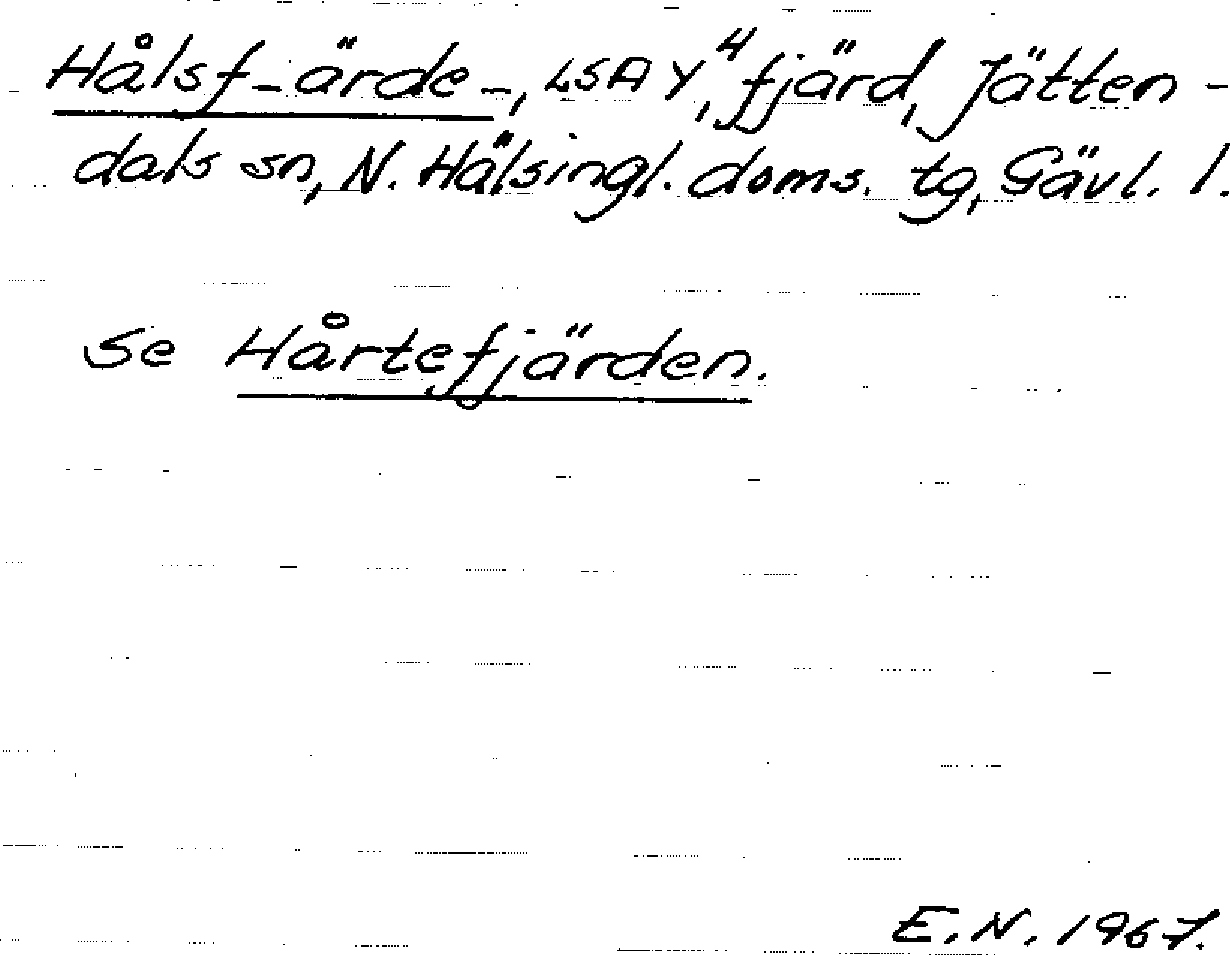 Hålsf-ärde-, LSA Y⁴, fjärd, Jätten-
dals sn, N. Hälsingl. doms. tg, Gävl. l.
Se Hårtefjärden.
E.N. 1967.